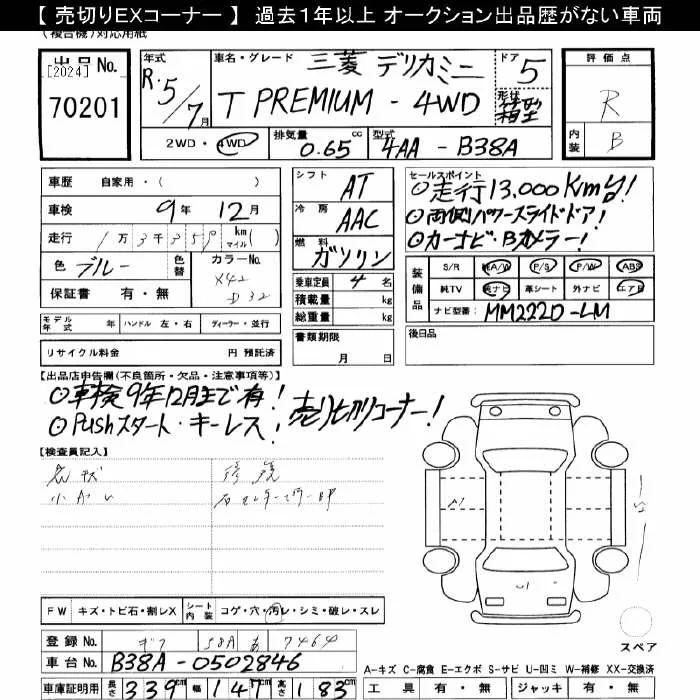 【 売切りEXコーナー 】 過去１年以上 オークション出品歴がない車両
(複合機)対応用紙
出品 No.
[2024]
70201
年式
R.5/7月
車名・グレード
三菱 デリカミニ
T PREMIUM - 4WD
ドア
5
形状
箱型
2WD・4WD
排気量
0.65 cc
型式
4AA - B38A
評価点
R
内装
B
車歴 自家用・( )
車検 9年 12月
走行 1万3千359 km マイル( )
色 ブルー
色替
カラーNo.
X42
D32
保証書 有・無
モデル年式 年 ハンドル 左・右 ディーラー・並行
リサイクル料金 円 預託済
シフト AT
冷房 AAC
燃料 ガソリン
乗車定員 4 名
積載量 kg
総重量 kg
書類期限
月 日
セールスポイント
◎走行13,000Km台！
◎両側パワースライドドア！
◎カーナビ・Bカメラー！
装備品
S/R A/W P/S P/W ABS
純TV 純ナビ 革シート 外ナビ エアB
ナビ型番: MM222D-LM
後日品
【出品店申告欄(不良箇所・欠品・注意事項等)】
◎車検9年12月まで有！
◎Pushスタート・キーレス！ 売り切りコーナー！
【検査員記入】
小キズ
FW キズ・トビ石・割レX
シート内装 コゲ・穴・汚レ・シミ・破レ・スレ
登録 No. ギフ 58A あ 7464
車台 No. B38A-0502846
車庫証明用 長さ 339cm 幅 147cm 高さ 183cm
A1
U1
スペア
A-キズ C-腐食 E-エクボ S-サビ U-凹ミ W-補修 XX-交換済
工具 有・無 ジャッキ 有・無